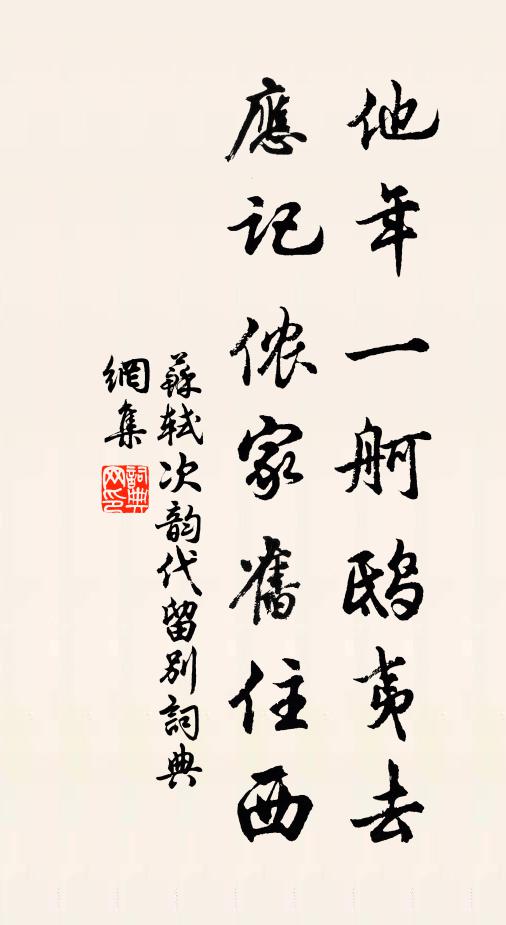 他年一舸鸱夷去
應記侬家舊住西
蘇轼次韵代留别詞典
網集
詞典
网印